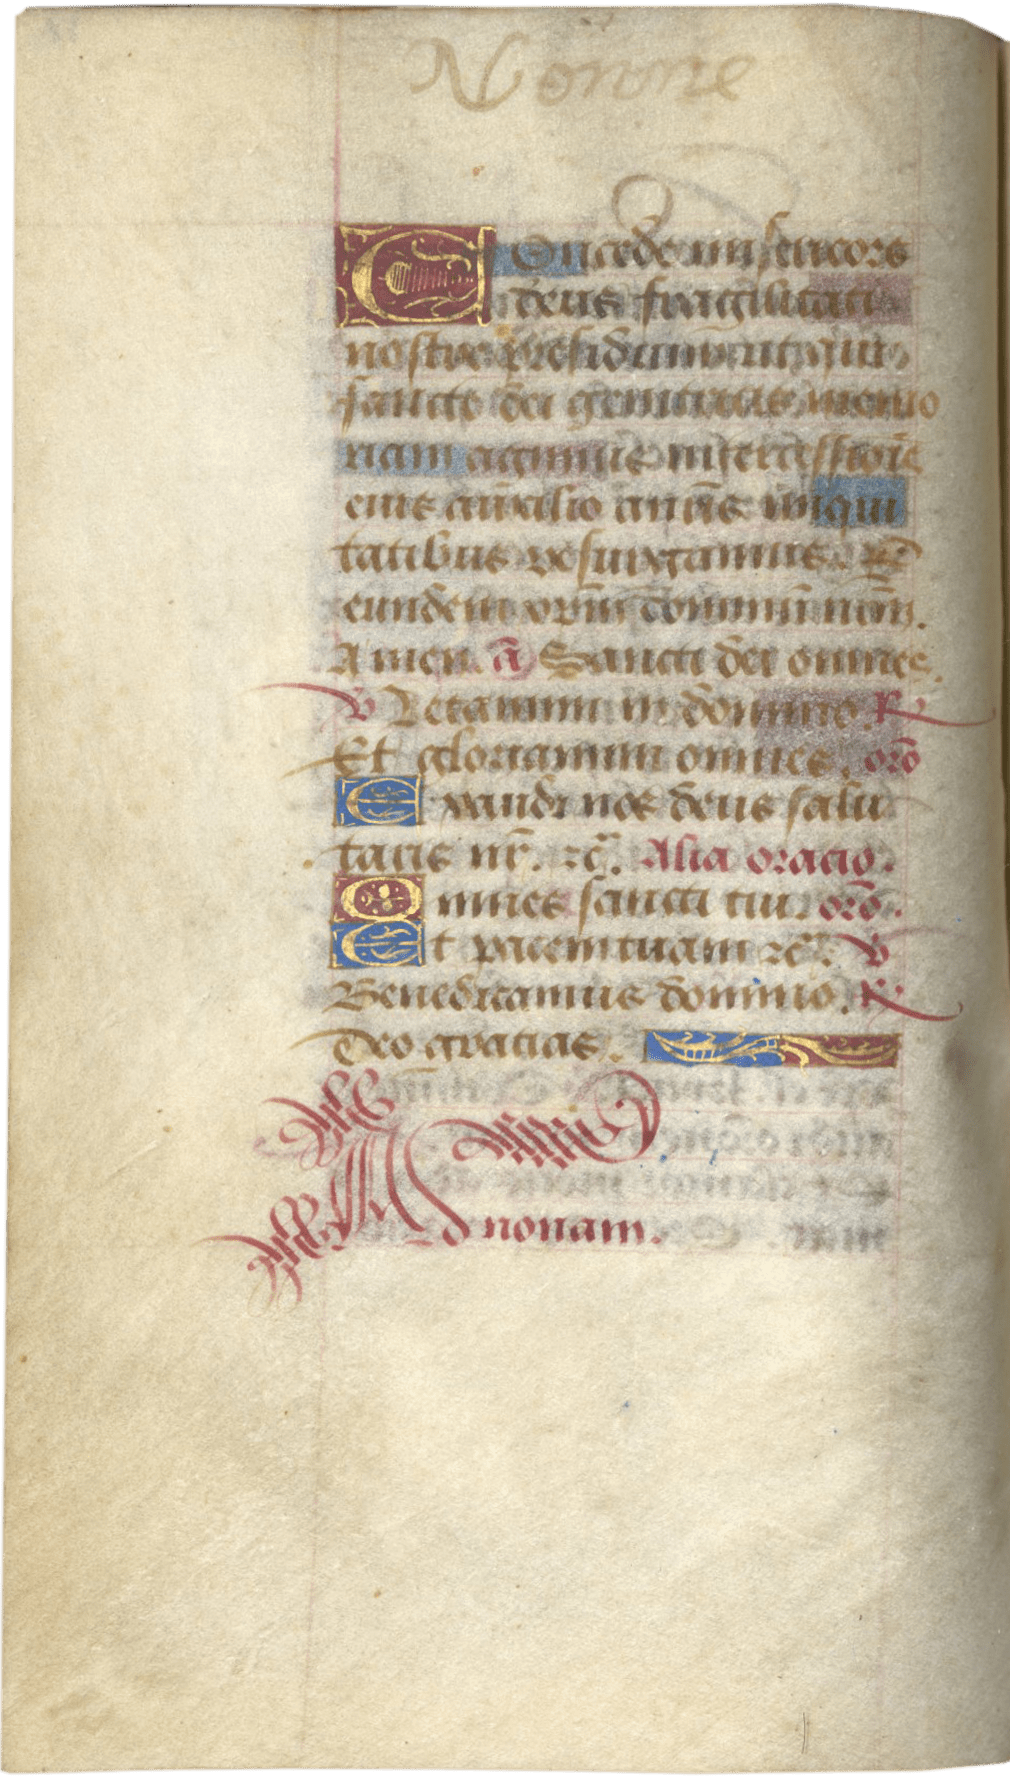 Nonne
Concede misericors
deus fragilitati
nostre presidium ut qui
sancte dei genitricis memo
riam agimus intercessiōis
eius auxilio a nr̄is iniqui
tatibus resurgamus. P
eundem xp̄m dominū nr̄m.
Amen. a᷃ Sancti dei omnes.
V Letamini in domino. R
Et gloriamini omnes. orō
Exaudi nos deus salu
taris nr̄. ⁊c̄. Alia oracio.
Omnes sancti tui orō.
Et pacem tuam ⁊c̄. V
Benedicamus domino. R
Deo gracias.
Ad nonam.